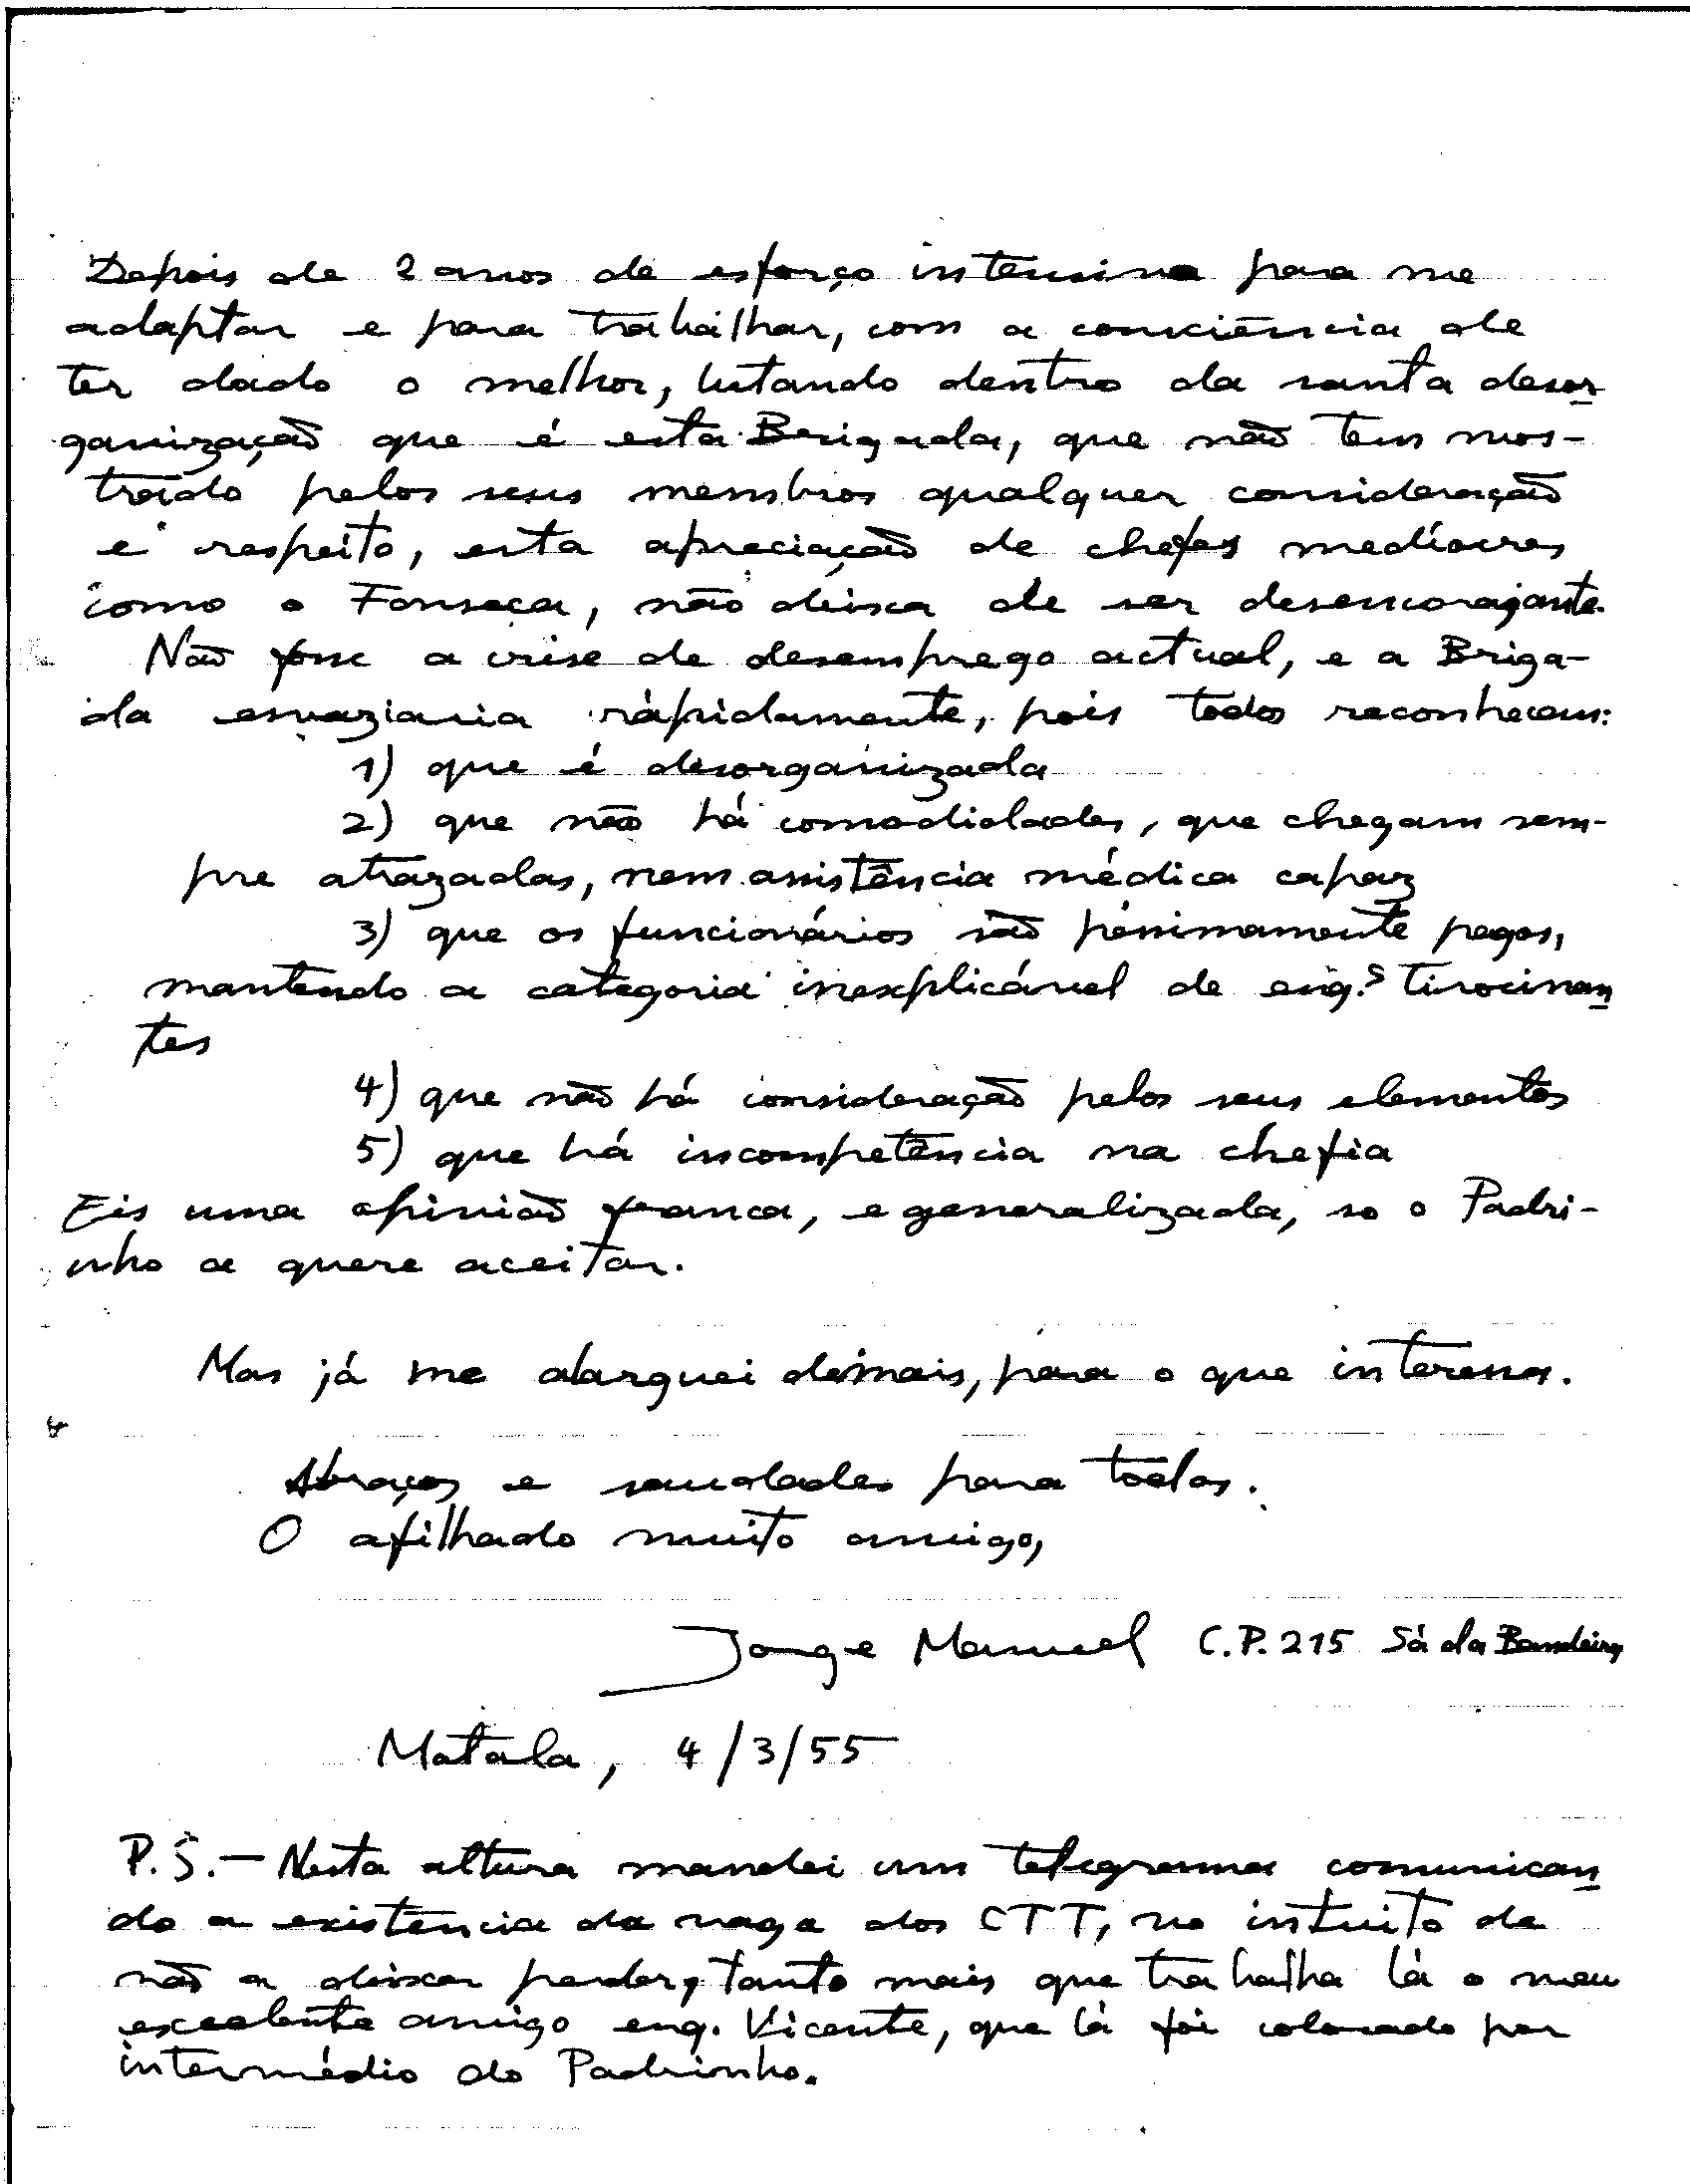 Depois de 2 anos de esforço intensivo para me
adaptar e para trabalhar, com a consciência de
ter dado o melhor, lutando dentro da santa desor-
ganização que é esta Brigada, que não tem mos-
trado pelos seus membros qualquer consideração
e respeito, esta apreciação de chefes medíocres
como o Fonseca, não deixa de ser desencorajante.
Não fosse a crise de desemprego actual, e a Briga-
da esvaziaria ràpidamente, pois todos reconhecem:
1) que é desorganizada
2) que não há comodidades, que chegam sem-
pre atrazadas, nem assistência médica capaz
3) que os funcionários são pèssimamente pagos,
mantendo a categoria inexplicável de eng.s tirocinan-
tes
4) que não há consideração pelos seus elementos
5) que há incompetência na chefia
Eis uma opinião franca, e generalizada, se o Padri-
nho a quere aceitar.
Mas já me alarguei demais, para o que interessa.
Abraços e saudades para todos.
O afilhado muito amigo,
Jorge Manuel C.P. 215 Sá da Bandeira
Matala, 4/3/55
P.S.- Nesta altura mandei um telegrama comunican-
do a existência da vaga dos CTT, no intuito de
não a deixar perder, tanto mais que trabalha lá o meu
excelente amigo eng. Vicente, que lá foi colocado por
intermédio do Padrinho.